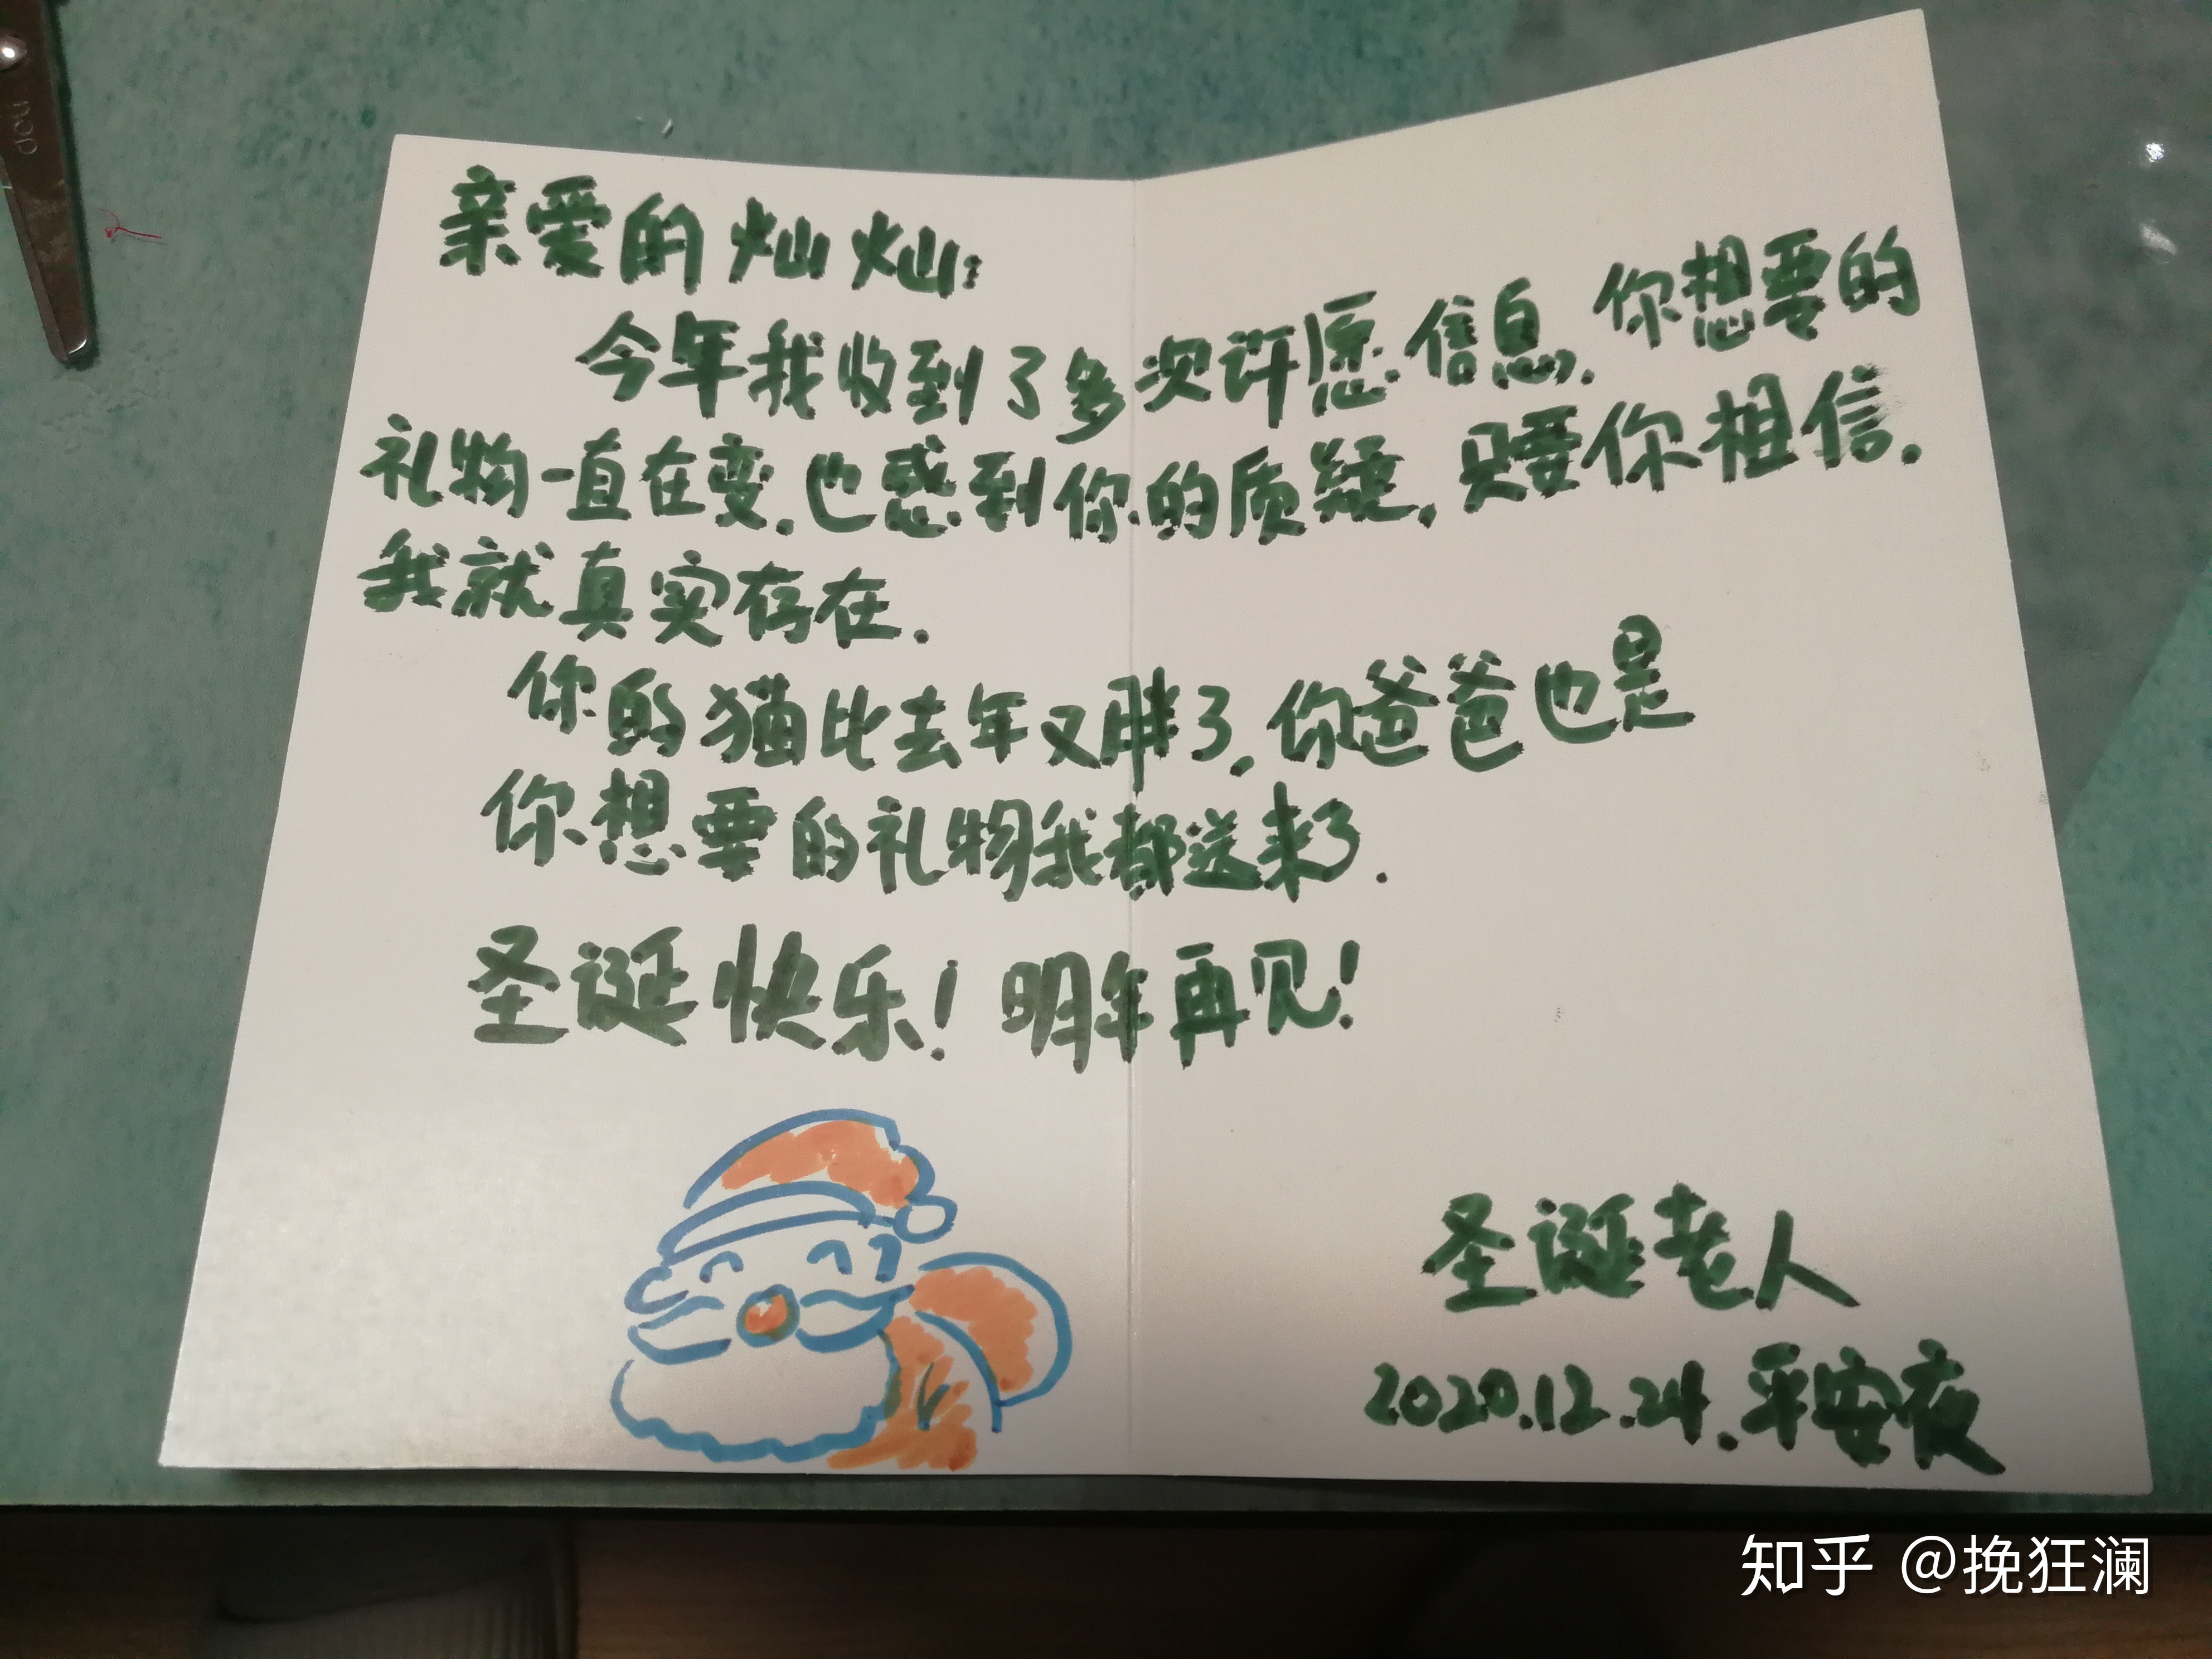 亲爱的灿灿:
今年我收到了多次许愿信息.你想要的
礼物一直在变.也感到你的质疑,只要你相信.
我就真实存在.
你的猫比去年又胖了.你爸爸也是
你想要的礼物我都送来了.
圣诞快乐!明年再见!
圣诞老人
2020.12.24.平安夜
deli
知乎 @挽狂澜